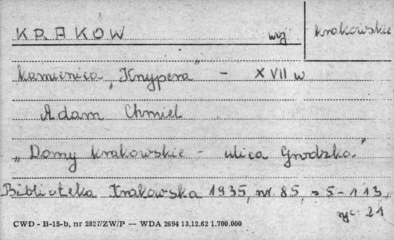 KRAKÓW woj. krakowskie
kamienica „Knypera" - XVII w
Adam Chmiel
„Domy krakowskie - ulica Grodzka"
Biblioteka Krakowska 1935, nr. 85, s 5-113,
ryc. 21
CWD - B-15-b, nr 2827/ZW/P — WDA 2694 13.12.62 1.700.000